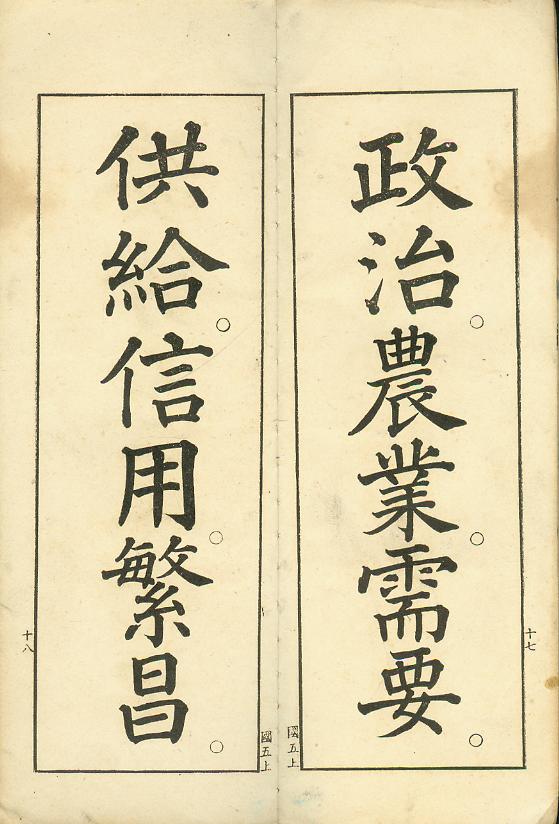 政治○農業○需要○
十七
國五上
供給○信用○繁昌○
國五上
十八